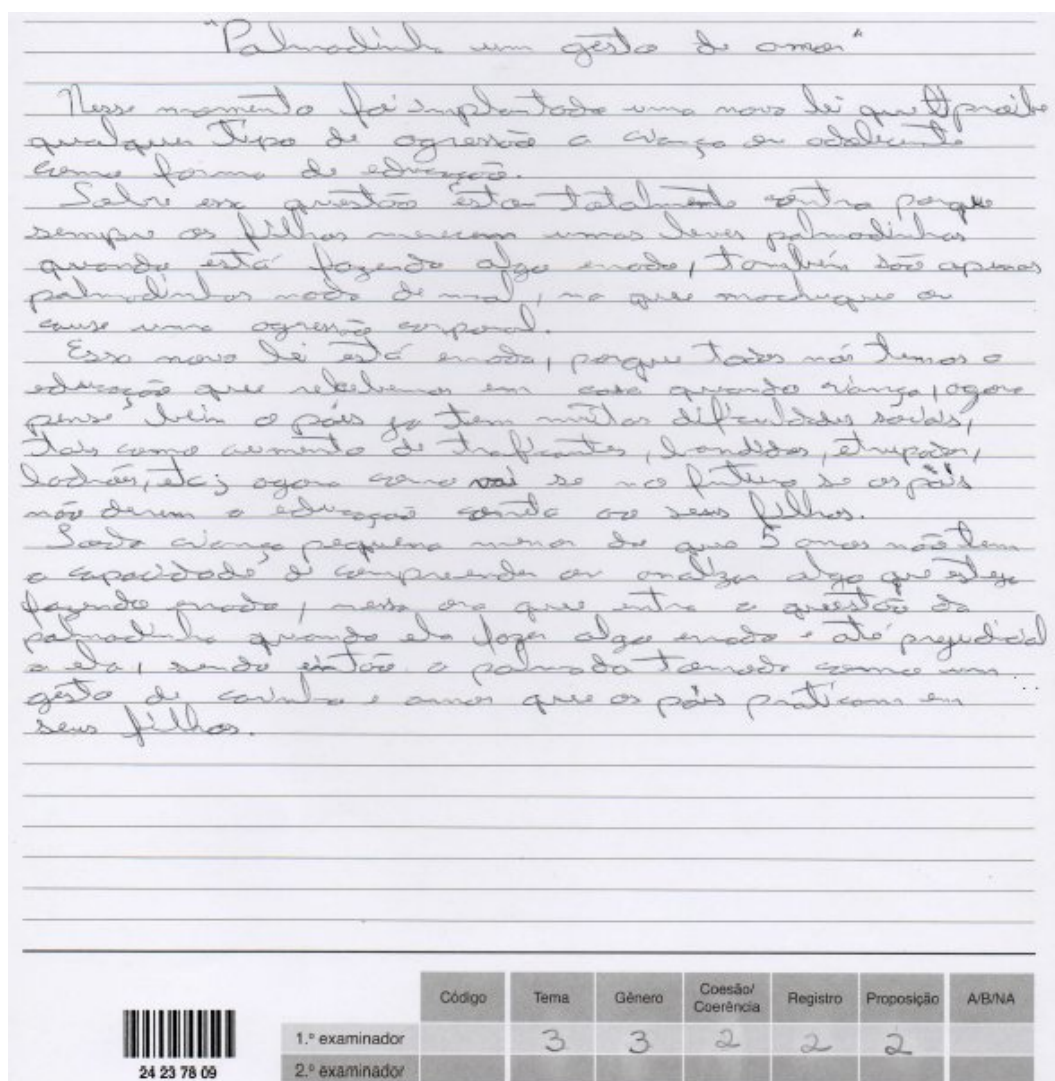 "Palmadinha um gesto de amor"
Nesse momento foi implantado uma nova lei que proibe
qualquer tipo de agressão a criança ou adolecente
como forma de educação.
Sobre essa questão estou totalmente contra porque
sempre os filhos merecem umas leves palmadinhas
quando está fazendo algo errado, também são apenas
palmadinhas nada de mal, na que machuque ou
cause uma agressão corporal.
Essa nova lei está errada, porque todos nós temos a
educação que recebemos em casa quando criança, agora
pense bem o país ja tem muitas dificuldades sociais,
tais como aumento de traficantes, bandidos, estrupador,
ladrões, etc; agora como vai se no futuro se os pais
não derem a educação correta ao seus filhos.
criança pequena menor de que 5 anos não tem
a capacidade de compreender ou analizar algo que esteja
fazendo errado, nessa ora que entra a questão da
palmadinha quando ela fazer algo errado e até prejudicial
a ela, sendo então a palmada tomada como um
gesto de carinho e amor que os pais praticam em
seus filhos.
Código Tema Gênero Coesão/Coerência Registro Proposição A/B/NA
1.º examinador 3 3 2 2 2
2.º examinador
24 23 78 09